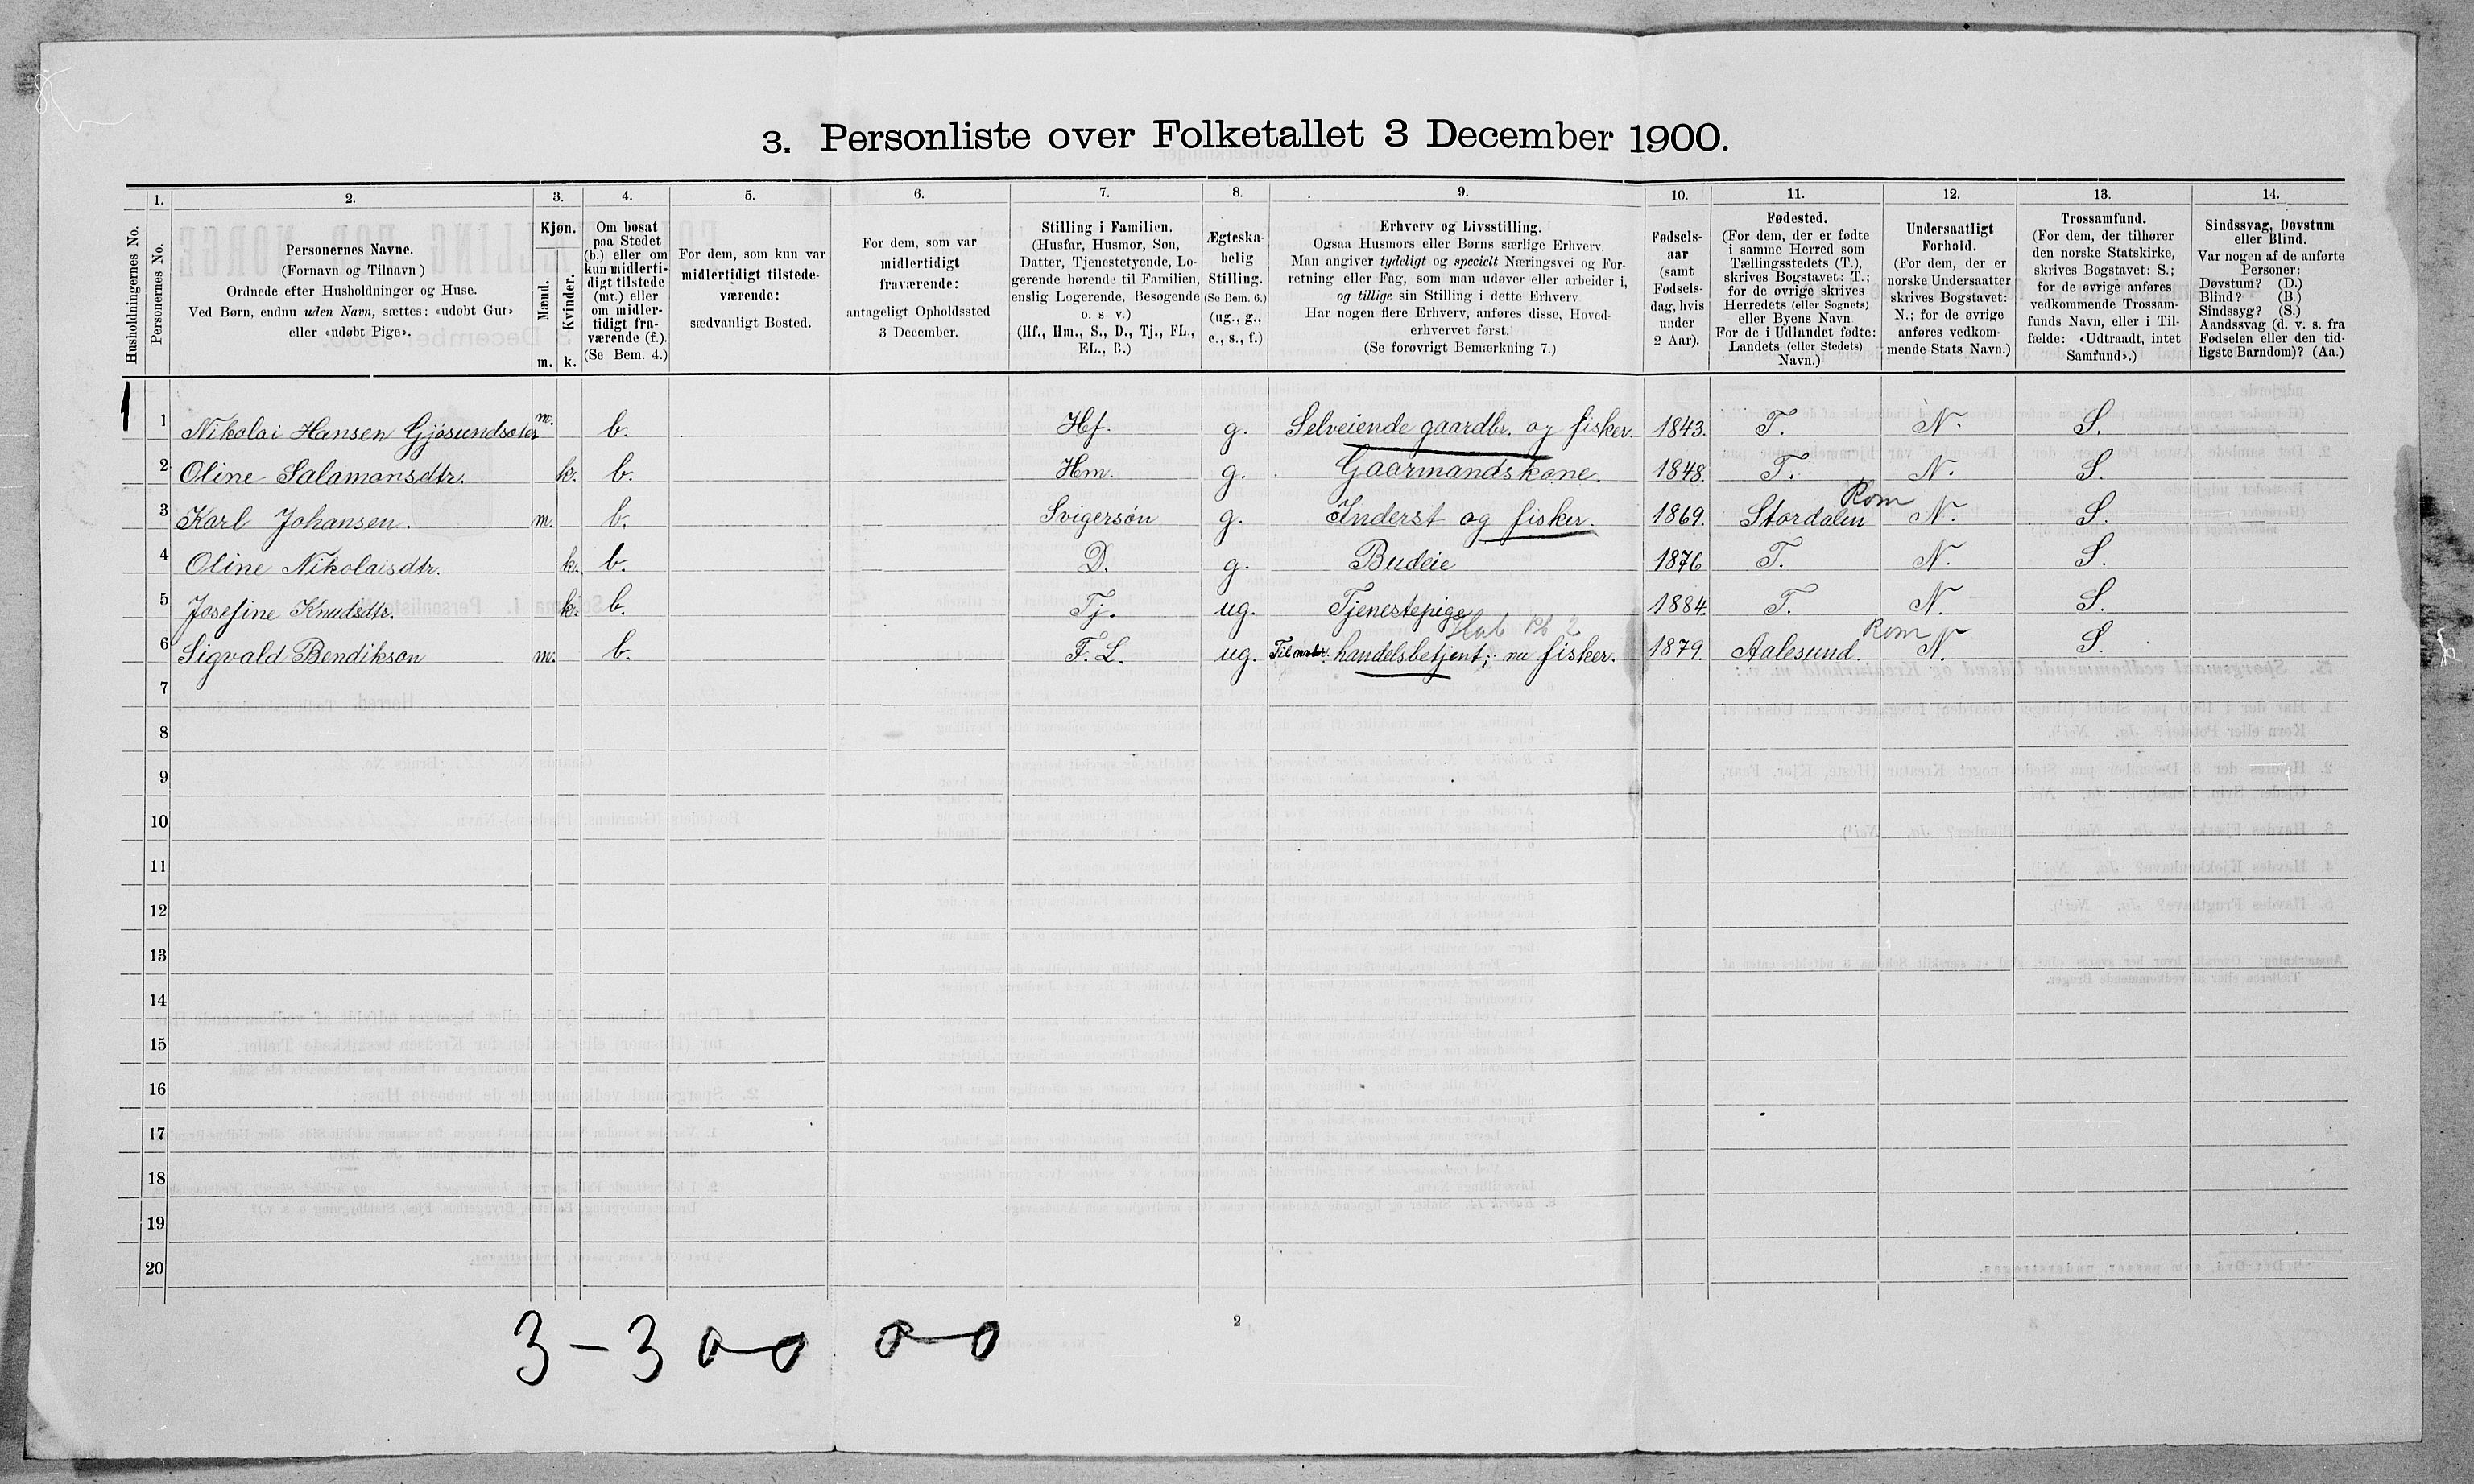 3. Personliste over Folketallet 3 December 1900.
1. 2. 3. 4. 5. 6. 7. 8. 9. 10. 11. 12. 13. 14.
Husholdningernes No.
Personernes No.
Personernes Navne.
(Fornavn og Tilnavn)
Ordnede efter Husholdninger og Huse.
Ved Børn, endnu uden Navn, sættes: «udøbt Gut»
eller «udøbt Pige».
Kjøn.
Mænd.
Kvinder.
m. k.
Om bosat
paa Stedet
(b.) eller om
kun midlerti-
digt tilstede
(mt.) eller
om midler-
tidigt fra-
værende (f.).
(Se Bem. 4.)
For dem, som kun var
midlertidigt tilstede-
værende:
sædvanligt Bosted.
For dem, som var
midlertidigt
fraværende:
antageligt Opholdssted
3 December.
Stilling i Familien.
(Husfar, Husmor, Søn,
Datter, Tjenestetyende, Lo-
gerende hørende til Familien,
enslig Logerende, Besøgende
o. s v.)
(Hf., Hm., S., D., Tj., FL.,
EL., B.)
Ægteska-
belig
Stilling.
(Se Bem. 6.)
(ug., g.,
e., s., f.)
Erhverv og Livsstilling.
Ogsaa Husmors eller Børns særlige Erhverv.
Man angiver tydeligt og specielt Næringsvei og For-
retning eller Fag, som man udøver eller arbeider i,
og tillige sin Stilling i dette Erhverv
Har nogen flere Erhverv, anføres disse, Hoved-
erhvervet først.
(Se forøvrigt Bemærkning 7.)
Fødsels-
aar
(samt
Fødsels-
dag, hvis
under
2 Aar).
Fødested.
(For dem, der er fødte
i samme Herred som
Tællingsstedets (T.),
skrives Bogstavet: T.;
for de øvrige skrives
Herredets (eller Sognets)
eller Byens Navn
For de i Udlandet fødte:
Landets (eller Stedets)
Navn.)
Undersaatligt
Forhold.
(For dem, der er
norske Undersaatter
skrives Bogstavet:
N.; for de øvrige
anføres vedkom-
mende Stats Navn.)
Trossamfund.
(For dem, der tilhører
den norske Statskirke,
skrives Bogstavet: S.;
for de øvrige anføres
vedkommende Trossam-
funds Navn, eller i Til-
fælde: «Udtraadt, intet
Samfund».)
Sindssvag, Døvstum
eller Blind.
Var nogen af de anførte
Personer:
Døvstum? (D.)
Blind? (B.)
Sindssyg? (S.)
Aandssvag (d. v. s. fra
Fødselen eller den tid-
ligste Barndom)? (Aa.)
1 1 Nikolai Hansen Gjøsundsæter m. b. Hf. g. Selveiende gaardbr. og fisker. 1843. T. N. S.
2 Oline Salamonsdtr. k. b. Hm. g. Gaarmandskone. 1848. T. N. S.
Rom
3 Karl Johansen. m. b. Svigersøn g. Inderst og fisker. 1869. Stordalen N. S.
4 Oline Nikolaisdtr. k. b. D. g. Budeie 1876 T. N. S.
5 Josefine Knudsdtr. k. b. Tj. ug. Tjenestepige 1884. T. N. S.
Rom
6 Sigvald Bendikson m. b. F. L. ug. handelsbetjent; nu fisker. 1879. Aalesund. N. S.
7
8
9
10
11
12
13
14
15
16
17
18
19
20
3-3 0-0 0-0
2